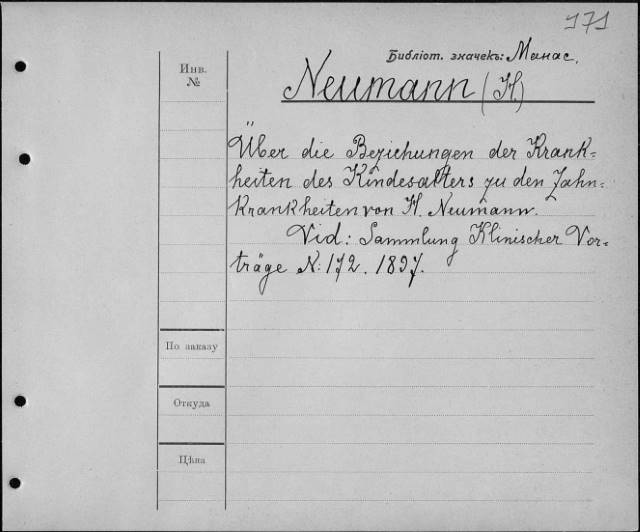 171
Библіот. значекъ: Манас.
Инв.
№
Neumann (H.)
Über die Beziehungen der Krank=
heiten des Kindesalters zu den Zahn=
Krankheiten von H. Neumann.
Vid: Sammlung Klinischer Vor=
träge N: 172. 1897.
По заказу
Откуда
Цѣна